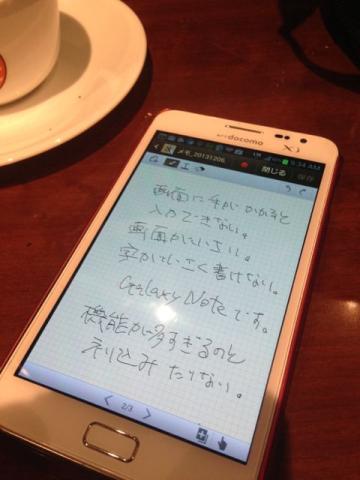 docomo Xi
9:34 AM
メモ_20131206
閉じる 保存
画面に手がかかると
入力できない。
画面が小さい。
字が小さく書けない。
Galaxy Noteです。
機能が多すぎるのと
売り込み たりない。
2/3